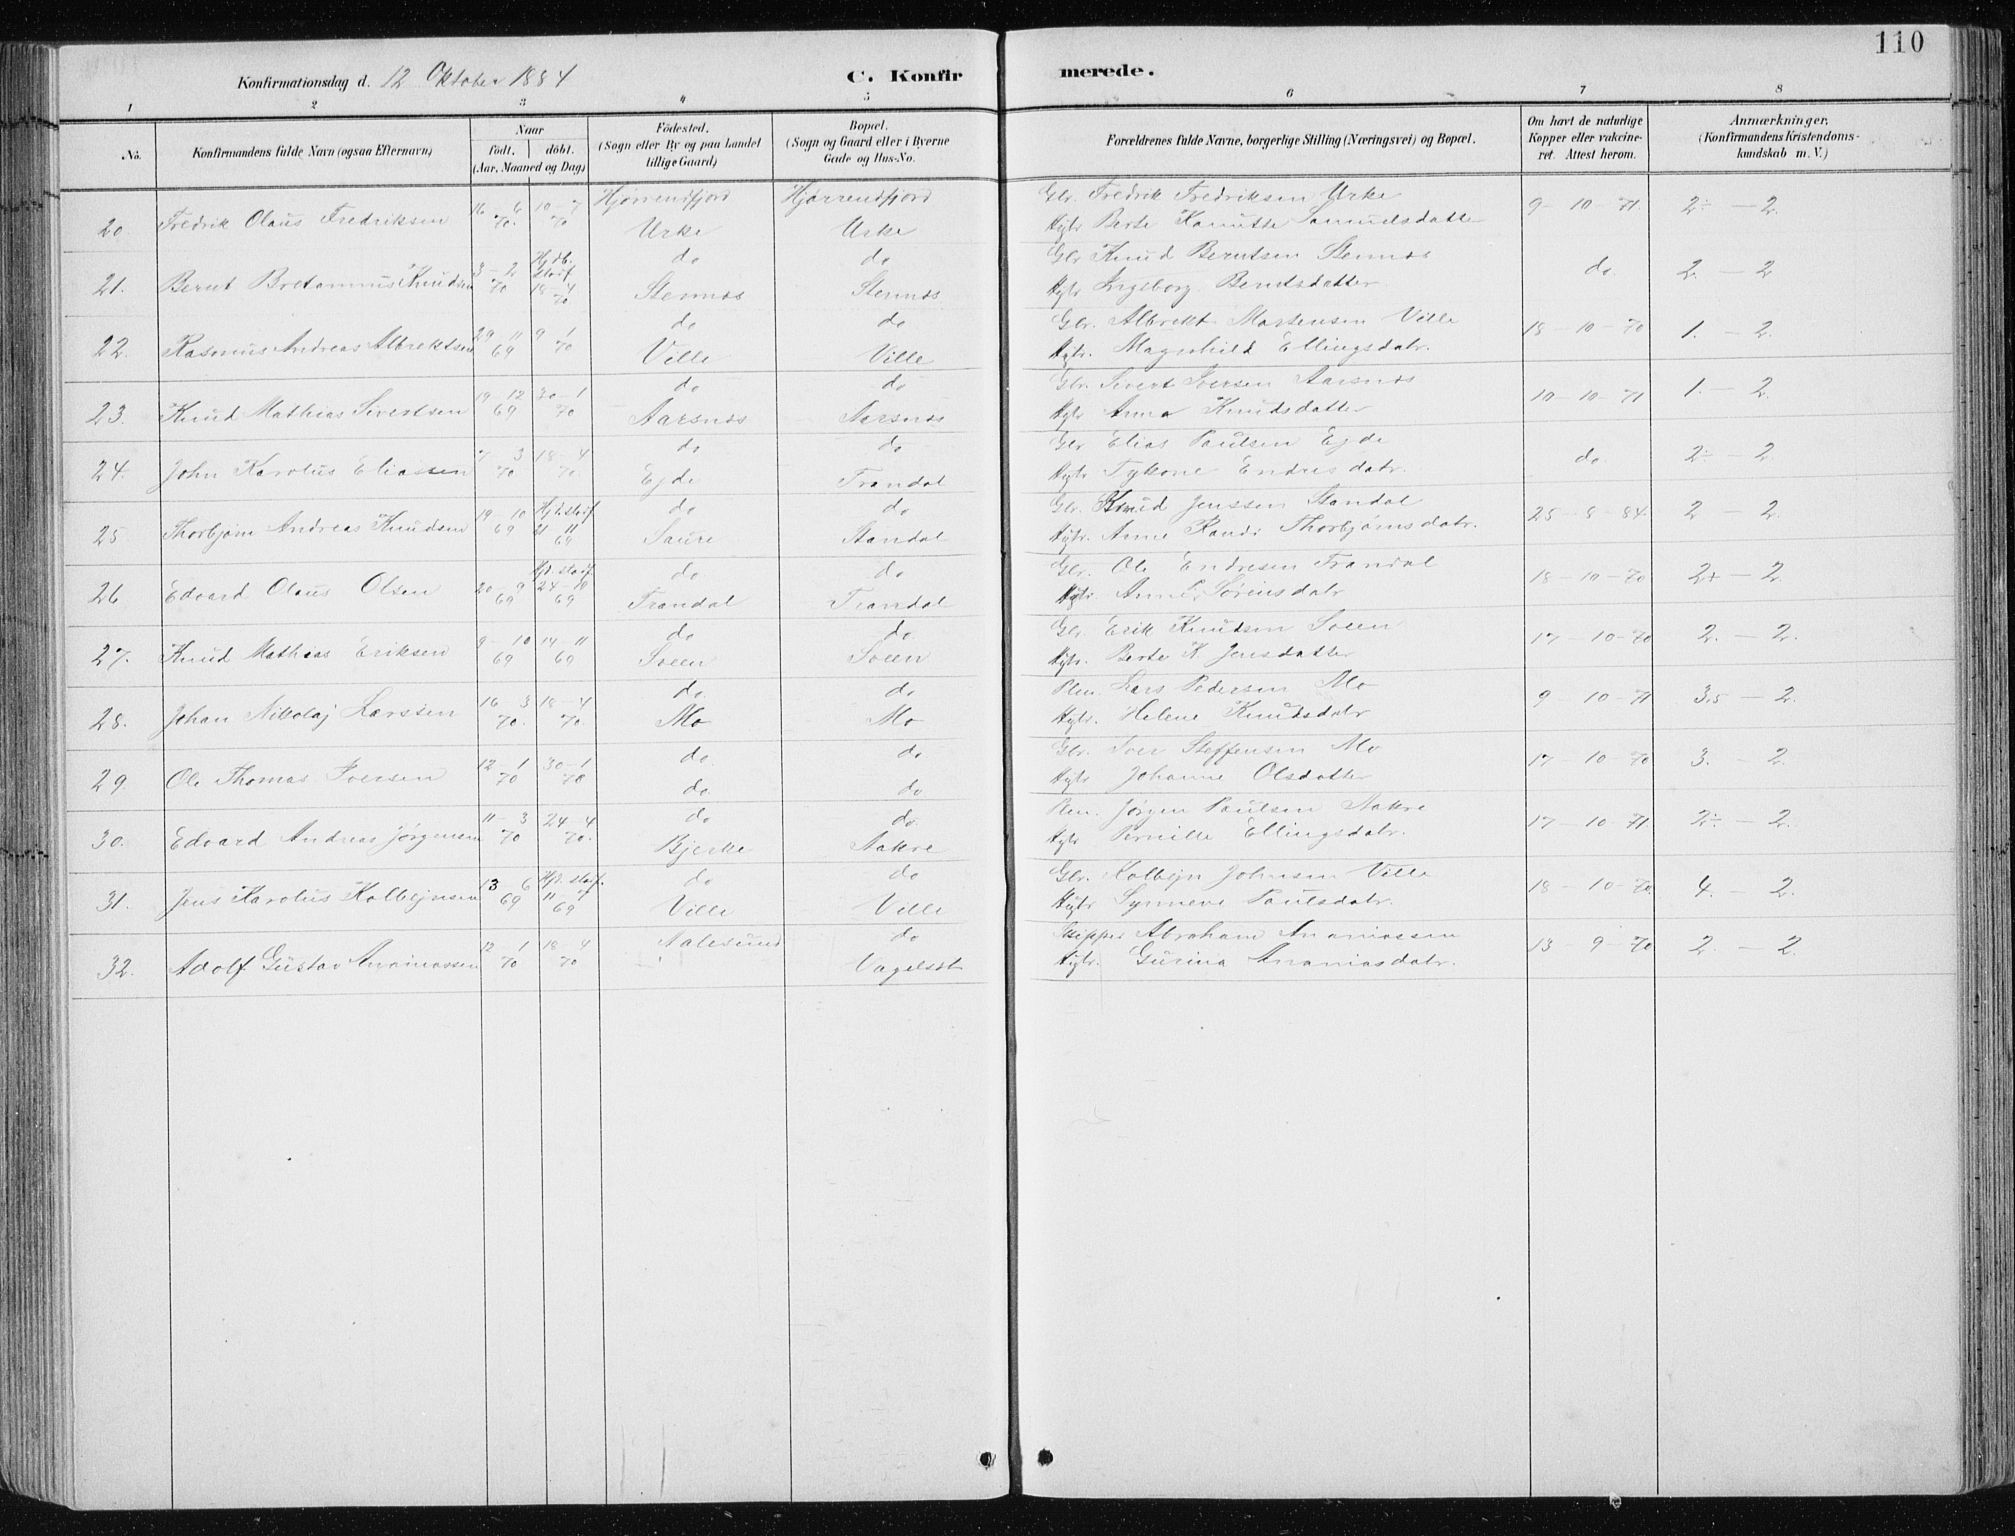 110
Konfirmationsdag d. 12 Oktober 1884 C. Konfirmerede.
1 2 3 4 5 6 7 8
No. Konfirmandens fulde Navn (ogsaa Efternavn) Naar født. døbt. (Aar, Maaned og Dag) Fødested. (Sogn eller By og paa Landet tillige Gaard) Bopæl. (Sogn og Gaard eller i Byerne Gade og Hus-No. Forældrenes fulde Navne, borgerlige Stilling (Næringsvei) og Bopæl. Om havt de naturlige Kopper eller vakcineret. Attest herom. Anmærkninger. (Konfirmandens Kristendomskundskab m. V.)
20. Fredrik Olaus Fredriksen 16-6 70. 10-7 70 Hjørrendfjord Urke Hjørrendfjord Urke Gbr. Fredrik Fredriksen Urke 9-10-71. 2÷ - 2.
Hstr Berte Knutte Samuelsdatter
21. Bernt Bretamnus Knudsen 3-2 70 Hjdb. Stadf. 18-4 70 do Stennes do Stennes Gbr Knud Berntsen Stennes do. 2. - 2
Hstr Ingeborg Berntsdatter
22. Rasmus Andreas Albrektsen 29 11 69 9 1 70 do Ville do Ville Gbr. Albrekt Mortensen Ville 18-10-70 1. - 2.
Hstr. Magnhild Ellingsdatr.
23. Knud Mathias Sivertsen 19 12 69 30-1 70 do Aarsnes do Aarsnes Gbr. Sivert Iversen Aarsnes 10-10-71 1. - 2.
Hstr Anna Knudsdatter
24. John Karolus Eliassen 7 3 70 18-4 70 do Ejde do Trandal Gbr Elias Paulsen Ejde do 2÷ - 2
Hstr Endresdatr.
25 Thorbjørn Andreas Knudsen 19 10 69 Hjd. stadf. 21 11 69 do Saure do Standal Gbr. Knud Jenssen Standal 25-8-84. 2 - 2.
Hstr. Anne Randi Thorbjørnsdatr.
26 Edvard Olaus Olsen 20-9 69 Hjd. stadf. 24-10 69 do Trandal do Trandal Gbr. Ole Endresen Trandal 18-10-70 2+ - 2.
Hstr. Anne P. Sørensdatr
27. Knud Mathias Eriksen 9 10 69 14-11 69 do Soeen do Soeen Gbr. Erik Knutsen Soeen 17-10-70 2. - 2.
Hstr. Berte K. Jensdatter
28. Johan Nikolaj Larssen 16 3 70. 18-4 70. do Mo do Mo Plm. Lars Pedersen Mo 9-10-71 3.5 - 2.
Hstr. Helene Knudsdatr
29 Ole Thomas Iversen 12-1 70 30-1 70 do do do do Gbr. Iver Steffensen Mo 17-10-70 3. - 2.
Hstr Johanne Olsdatter
30. Edvard Andreas Jørgensen 11-3 70 24-4 70. do Bjerke do Aakre Plm. Jørgen Paulsen Aakre 17-10-71. 2÷ - 2.
Hstr Pernille Ellingsdatr.
31. Jens Karolus Kolbejnsen 13 6 69 Hjd. stadf. 11 7 69 do Ville do Ville Gbr. Kolbejn Johnsen Ville 18-10-70. 4. - 2.
Hstr Synneve Paulsdatr.
32. Adolf Gustav Ananiassen 12-1 70 18-4 70 Aalesund do Vagelsæt Skipper Abraham Ananiassen 13-9-70 2 - 2.
Hstr. Gurina Ananiasdatr.